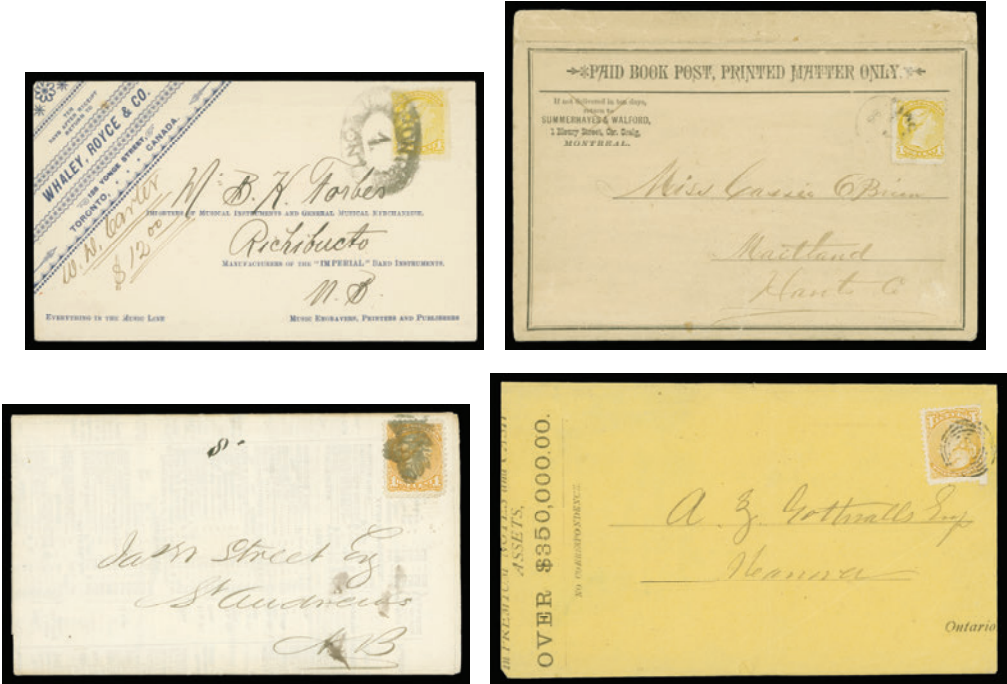 TEN
DAYS AFTER RECEIPT
RETURN TO
WHALEY, ROYCE & CO.
158 YONGE STREET,
TORONTO, CANADA.
W. D. Carter
$12.00
B. H. Forbes
IMPORTERS OF MUSICAL INSTRUMENTS AND GENERAL MUSICAL MERCHANDISE.
Richibucto
MANUFACTURERS OF THE "IMPERIAL" BAND INSTRUMENTS.
N. B.
EVERYTHING IN THE MUSIC LINE
MUSIC ENGRAVERS, PRINTERS AND PUBLISHERS
PAID BOOK POST, PRINTED MATTER ONLY.
If not delivered in ten days,
return to
SUMMERHAYES & WALFORD,
1 Bleury Street, Cor. Craig,
MONTREAL.
Miss Cassie O'Brien
Maitland
Hants Co
8.
Street Esq
St Andrews
N B
in PREMIUM NOTES and CASH
ASSETS,
OVER $350,000.00.
NO CORRESPONDENCE.
A. Z. Gottwalls Esq
Ontario